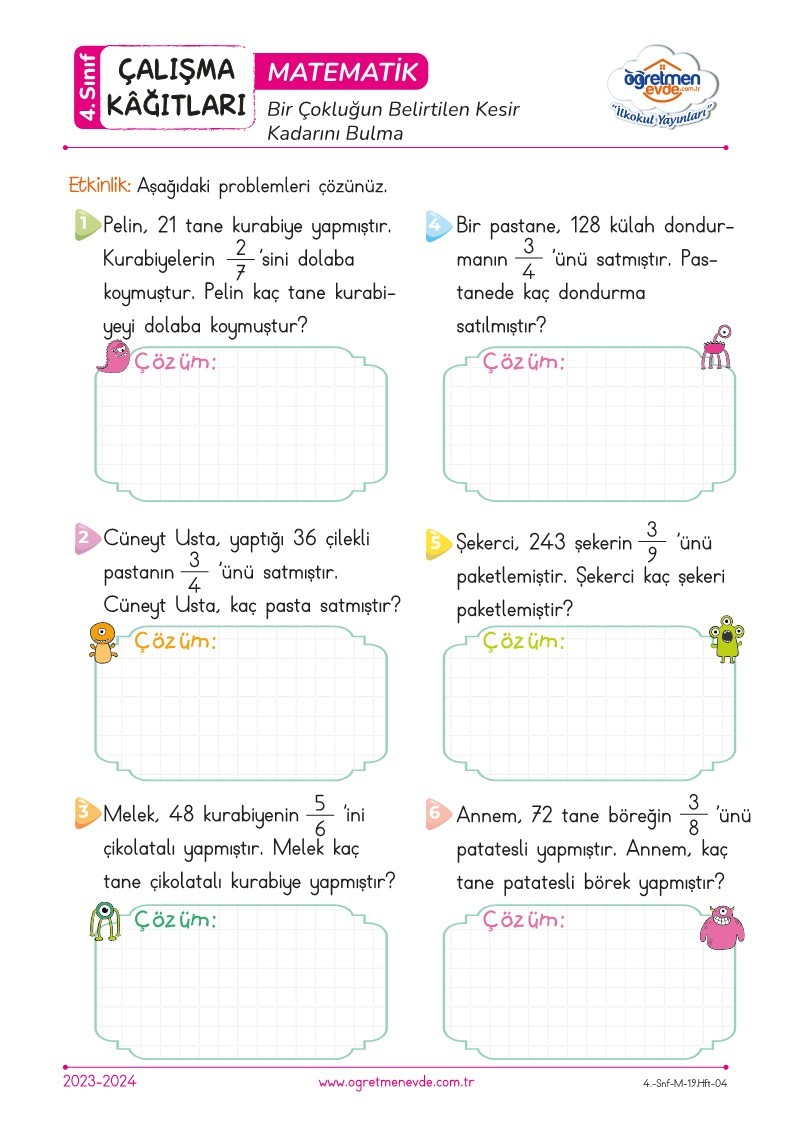 4. Sınıf
ÇALIŞMA
KÂĞITLARI
MATEMATİK
Bir Çokluğun Belirtilen Kesir
Kadarını Bulma
öğretmen
evde.com.tr
"İlkokul Yayınları"
Etkinlik: Aşağıdaki problemleri çözünüz.
1 Pelin, 21 tane kurabiye yapmıştır.
Kurabiyelerin 2/7 'sini dolaba
koymuştur. Pelin kaç tane kurabi-
yeyi dolaba koymuştur?
Çözüm:
2 Cüneyt Usta, yaptığı 36 çilekli
pastanın 3/4 'ünü satmıştır.
Cüneyt Usta, kaç pasta satmıştır?
Çözüm:
3 Melek, 48 kurabiyenin 5/6 'ini
çikolatalı yapmıştır. Melek kaç
tane çikolatalı kurabiye yapmıştır?
Çözüm:
4 Bir pastane, 128 külah dondur-
manın 3/4 'ünü satmıştır. Pas-
tanede kaç dondurma
satılmıştır?
Çözüm:
5 Şekerci, 243 şekerin 3/9 'ünü
paketlemiştir. Şekerci kaç şekeri
paketlemiştir?
Çözüm:
6 Annem, 72 tane böreğin 3/8 'ünü
patatesli yapmıştır. Annem, kaç
tane patatesli börek yapmıştır?
Çözüm:
2023-2024
www.ogretmenevde.com.tr
4.-Snf-M-19.Hft-04